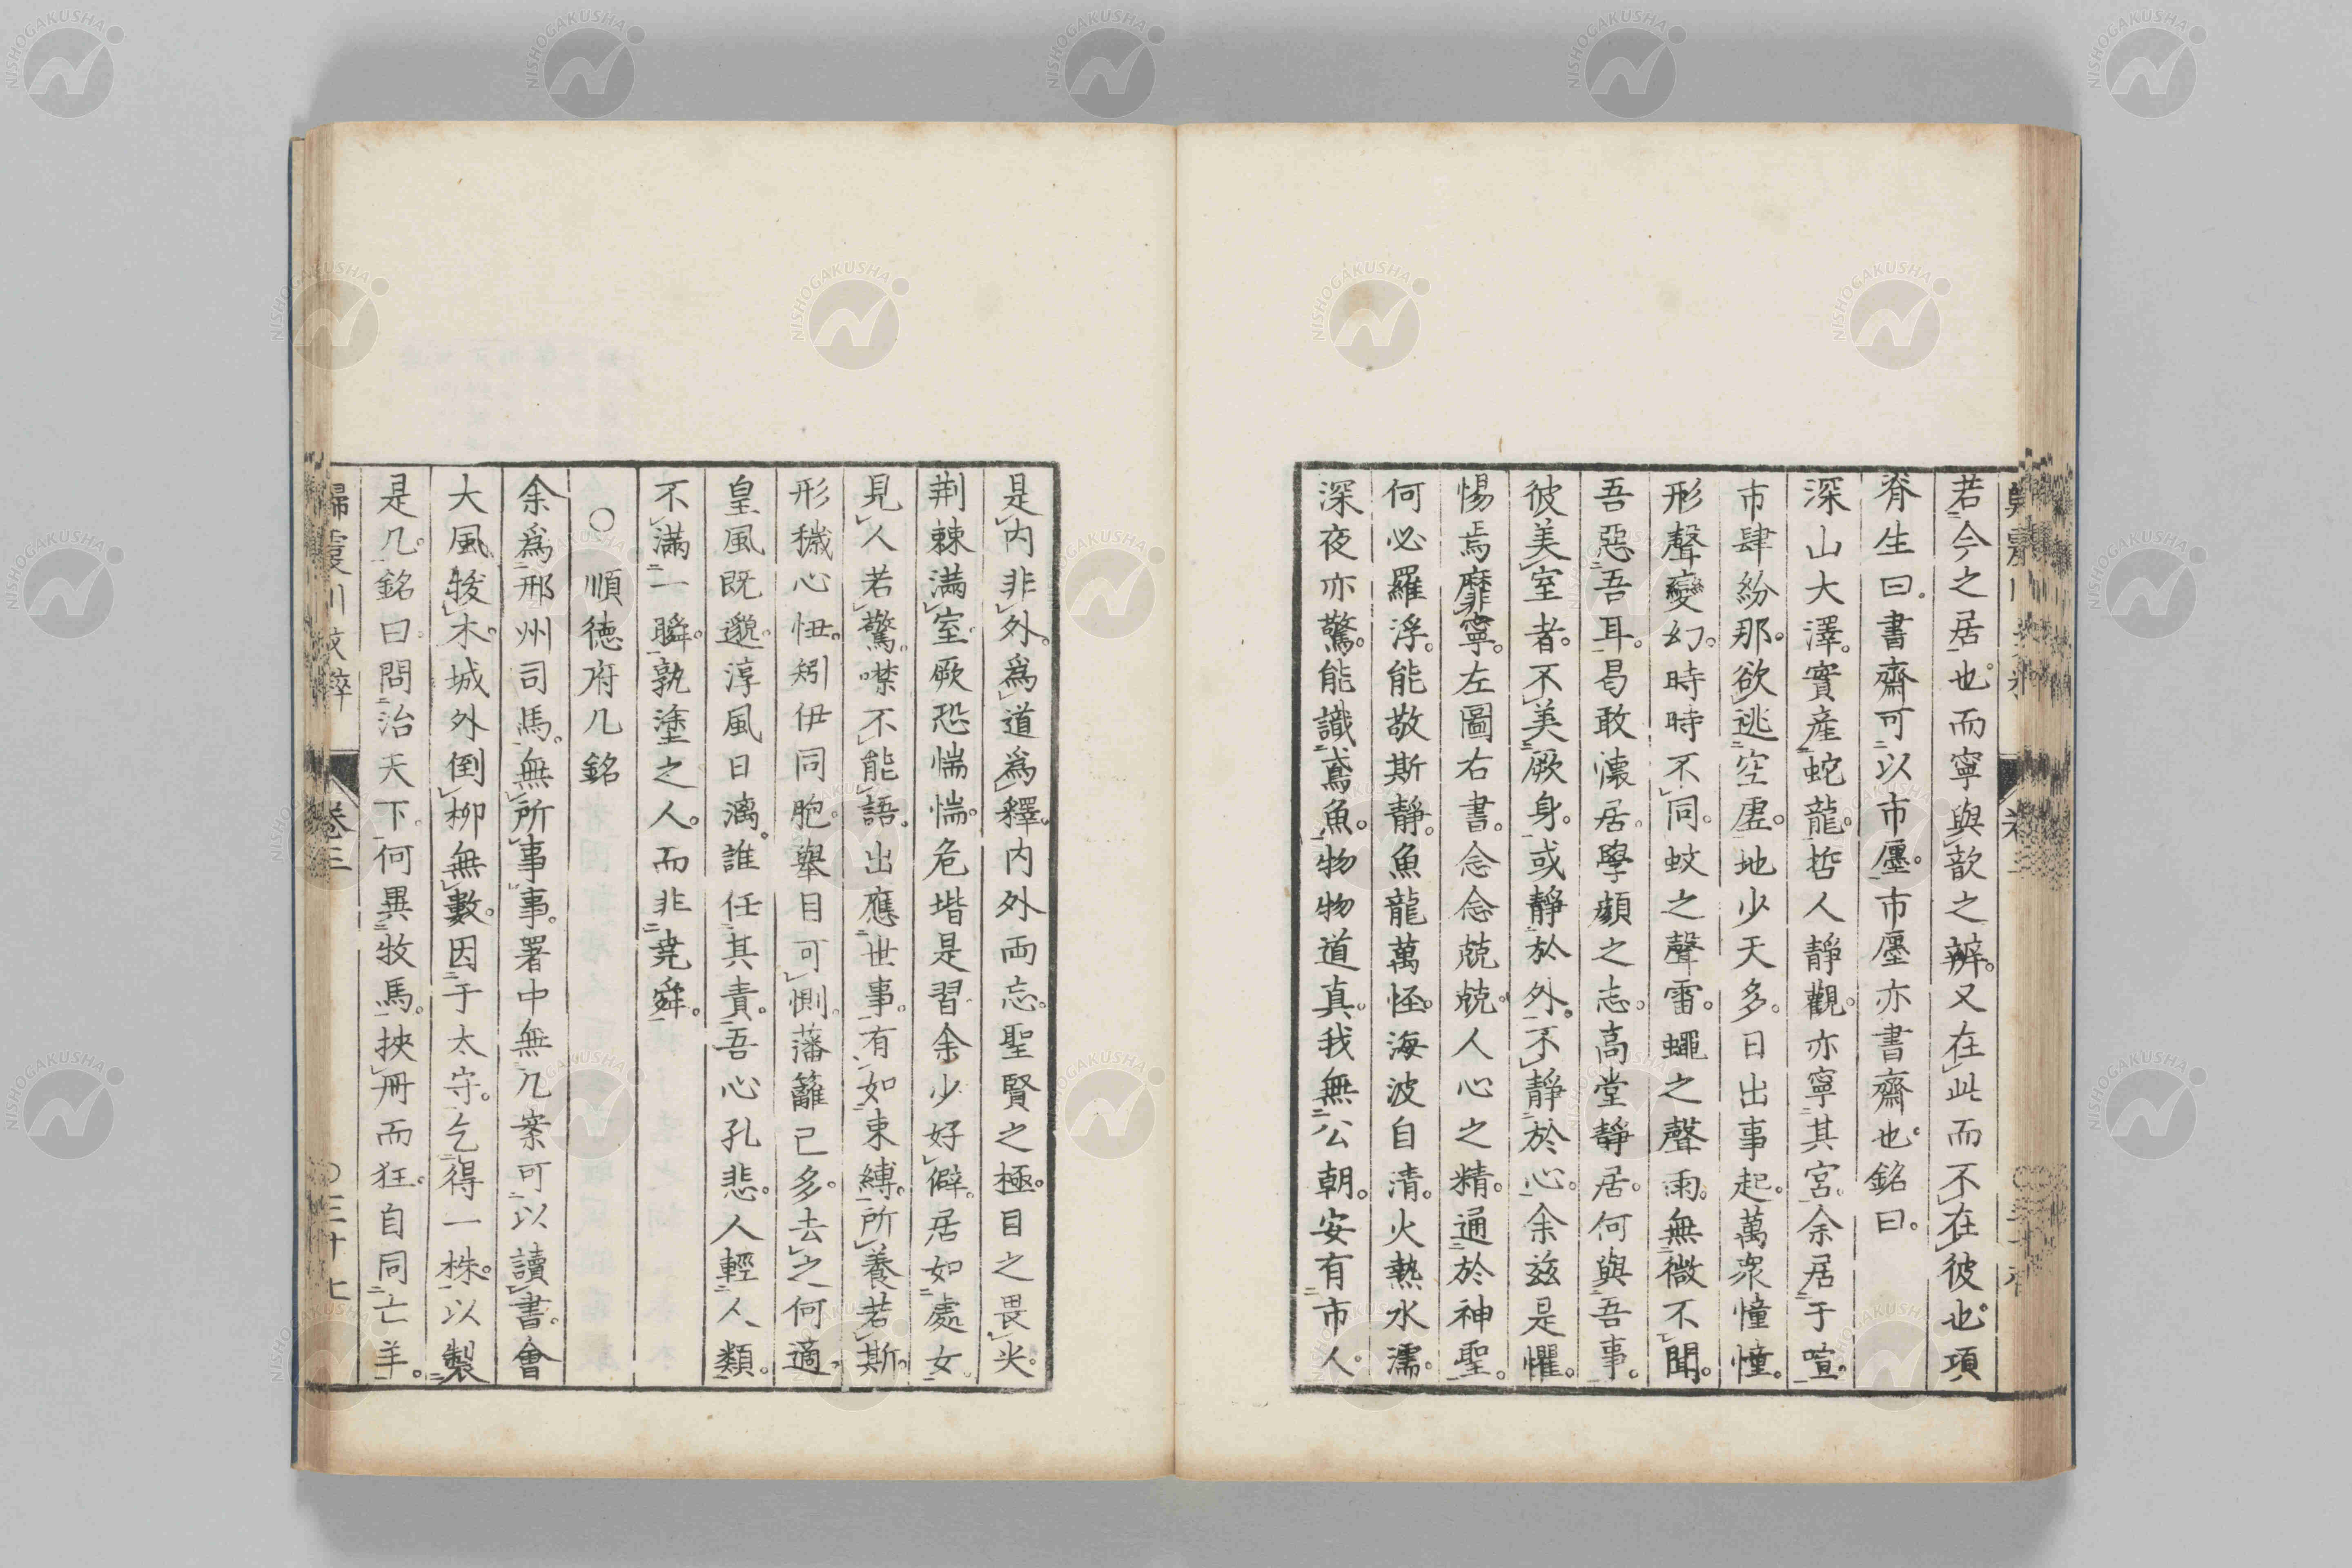 若今之居也。而寧與歆之辨。又在此而不在彼也。項
脊生曰。書齋可以市廛。市廛亦書齋也。銘曰。
深山大澤。實產蛇龍。哲人靜觀。亦寧其宮。余居于喧。
市肆紛那。欲逃空虛。地少天多。日出事起。萬眾憧憧。
形聲變幻。時時不同。蚊之聲雷。蠅之聲雨。無微不聞。
吾惡吾耳。曷敢懷居。學顏之志。高堂靜居。何與吾事。
彼美室者。不美厥身。或靜於外。不靜於心。余兹是懼。
惕焉靡寧。左圖右書。念念兢兢。人心之精。通於神聖。
何必羅浮。能敬斯靜。魚龍萬怪。海波自清。火熱水濡。
深夜亦驚。能識鳶魚。物物道真。我無公朝。安有市人。
是內非外。爲道爲釋。內外兩忘。聖賢之極。目之畏尖。
荆棘滿室。厥恐惴惴。危堦是習。余少好僻。居如處女。
見人若驚。噤不能語。出應世事。有如束縛。所養若斯。
形穢心忸。矧伊同胞。舉目可惻。藩籬已多。去之何適。
皇風既邈。淳風日漓。誰任其責。吾心孔悲。人輕人類。
不滿一瞬。孰塗之人。而非堯舜。
○順德府几銘
余爲邢州司馬。無所事事。署中無几案可以讀書。會
大風拔木。城外倒柳無數。因于太守。乞得一株。以製
是几。銘曰。問治天下。何異牧馬。挾冊而狂。自同亡羊。
歸震川文粹 卷三 ○三十七
NISHOGAKUSHA